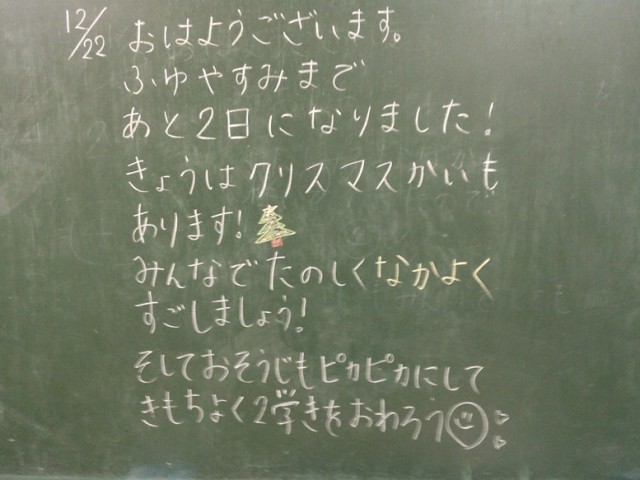 12/22
おはようございます。
ふゆやすみまで
あと2日になりました!
きょうはクリスマスかいも
あります!
みんなでたのしくなかよく
すごしましょう!
そしておそうじもピカピカにして
きもちよく2学きをおわろう